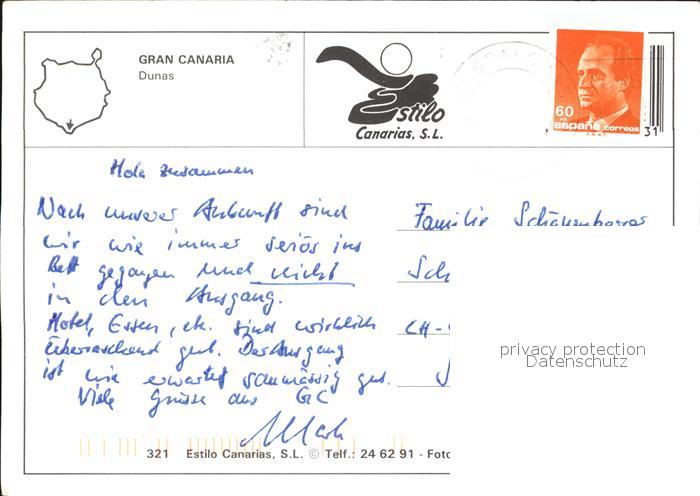 GRAN CANARIA
Dunas
Estilo
Canarias, S.L.
60
PTA
españa correos
31
Hola zusammen
Nach unserer Ankunft sind
wir wie immer seriös ins
Bett gegangen und nicht
in den Ausgang.
Hotel, Essen, etc. sind wirklich
überraschend gut. Der Ausgang
ist wie erwartet saumässig gut.
Viele Grüsse aus GC
Familie
Sch
CH-
privacy protection
Datenschutz
321 Estilo Canarias, S.L. © Telf.: 24 62 91 - Foto